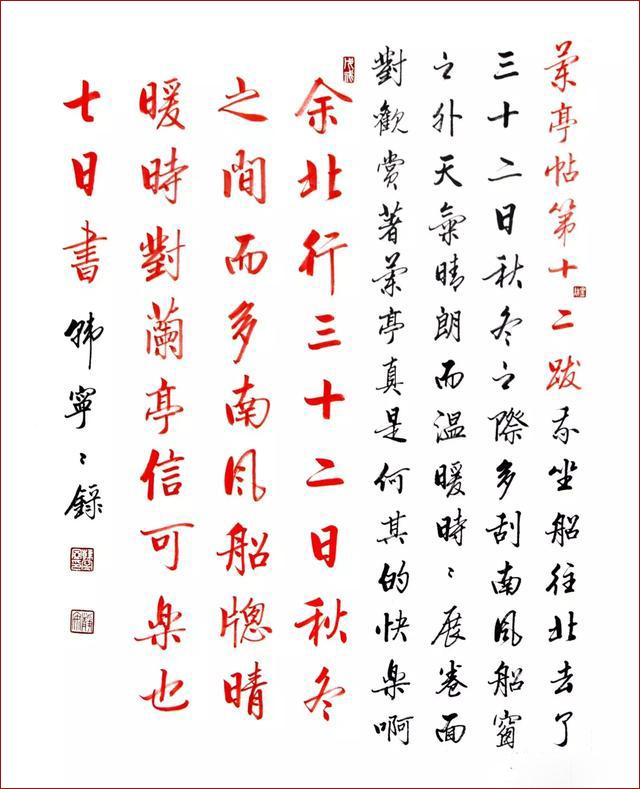 蘭亭帖第十二跋我坐船往北去了
三十二日秋冬之際多刮南風船窗
之外天氣晴朗而温暖時〻展卷面
對觀賞著蘭亭真是何其的快樂啊
余北行三十二日秋冬
之間而多南風船牕晴
暖時對蘭亭信可樂也
七日書韓寧〻錄